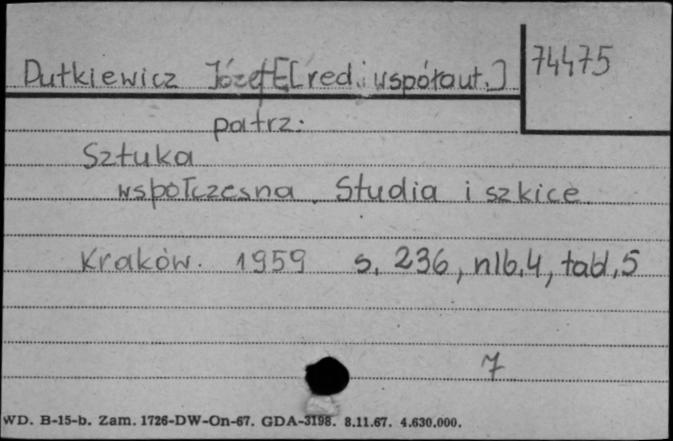 Dutkiewicz Józef E [red. i współaut.]
74475
patrz:
Sztuka
współczesna. Studia i szkice.
Kraków. 1959 s. 236, nlb. 4, tabl. 5
7
WD. B-15-b. Zam. 1726-DW-On-67. GDA-3198. 8.11.67. 4.630.000.